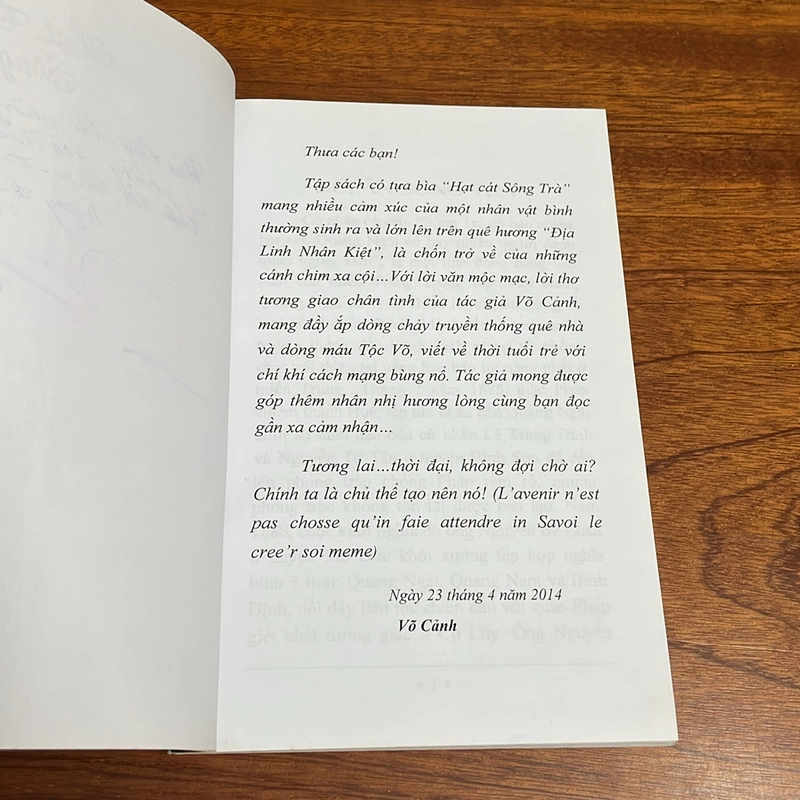 Thưa các bạn!
Tập sách có tựa bìa “Hạt cát Sông Trà”
mang nhiều cảm xúc của một nhân vật bình
thường sinh ra và lớn lên trên quê hương “Địa
Linh Nhân Kiệt”, là chốn trở về của những
cánh chim xa cội…Với lời văn mộc mạc, lời thơ
tương giao chân tình của tác giả Võ Cảnh,
mang đầy ắp dòng chảy truyền thống quê nhà
và dòng máu Tộc Võ, viết về thời tuổi trẻ với
chí khí cách mạng bùng nổ. Tác giả mong được
góp thêm nhân nhị hương lòng cùng bạn đọc
gần xa cảm nhận…
Tương lai…thời đại, không đợi chờ ai?
Chính ta là chủ thể tạo nên nó! (L’avenir n’est
pas chosse qu’in faie attendre in Savoi le
cree’r soi meme)
Ngày 23 tháng 4 năm 2014
Võ Cảnh